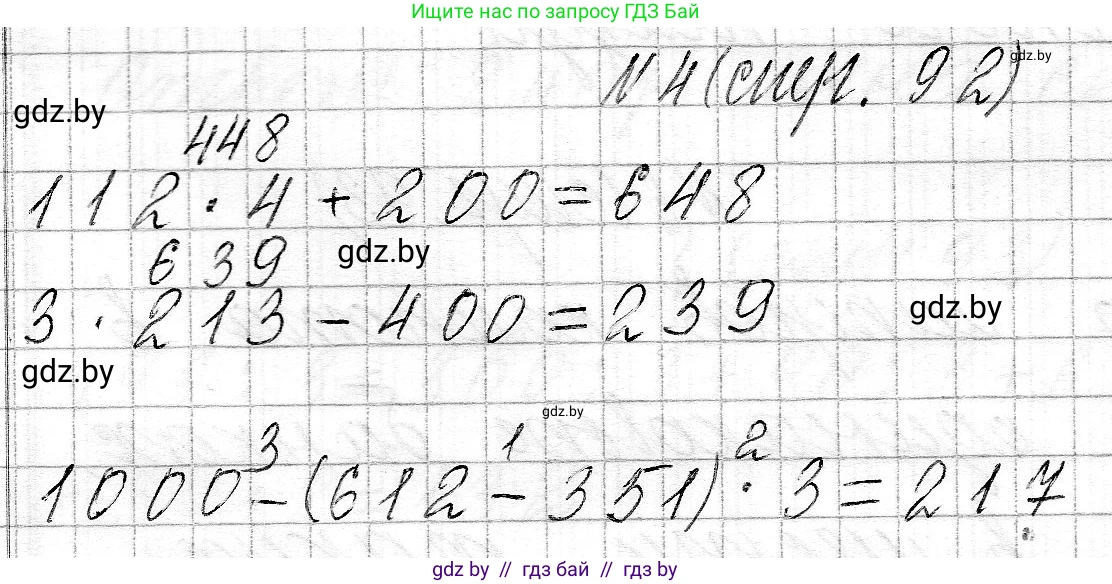 Ищите нас по запросу ГДЗ Бай
N 4 (стр. 92)
gdz.by
gdz.by
448
112 · 4 + 200 = 648
639
gdz.by
3 · 213 - 400 = 239
gdz.by
gdz.by
gdz.by
3 1 2
1000 - (612 - 351) · 3 = 217
gdz.by // гдз бай // гдз by